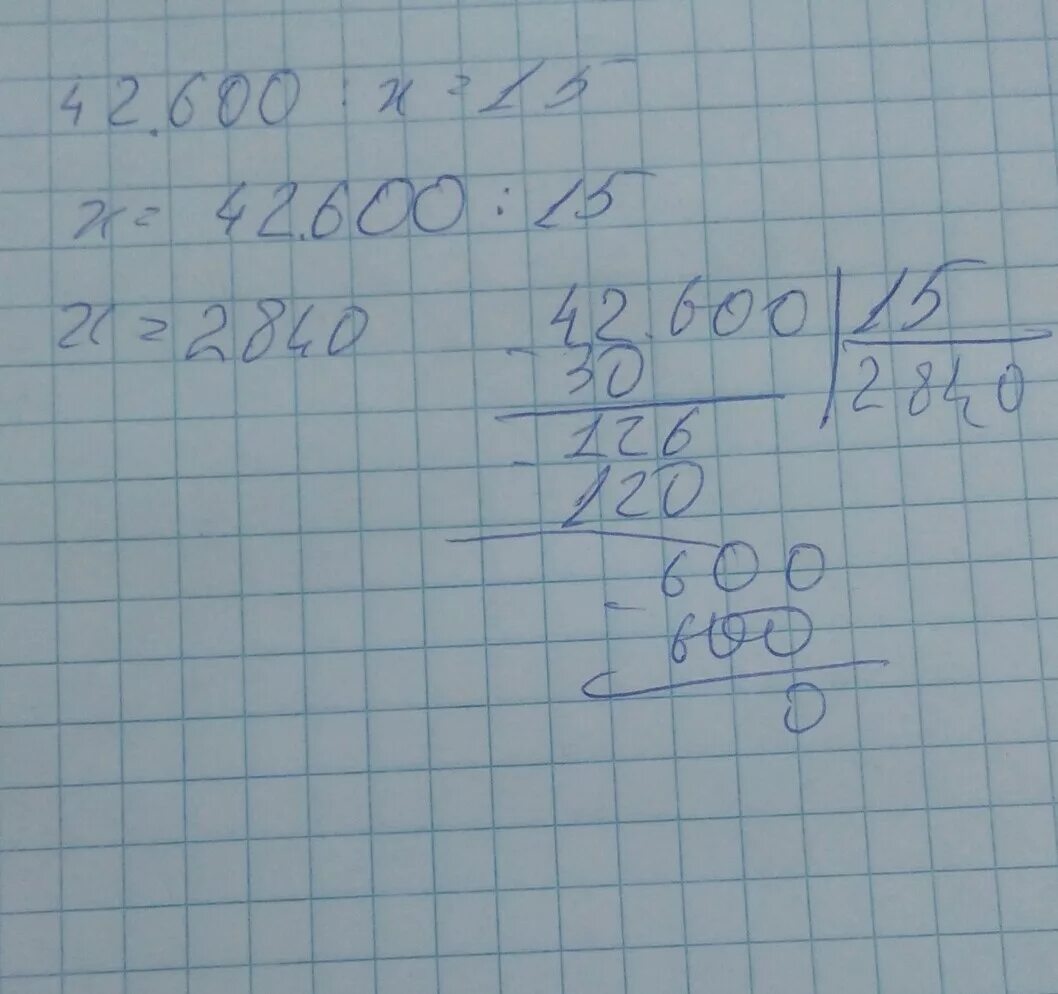 42.600 : x = 15
x = 42.600 : 15
x = 2840
- 42.600 | 15
30 | 2840
- 126
120
- 600
600
0